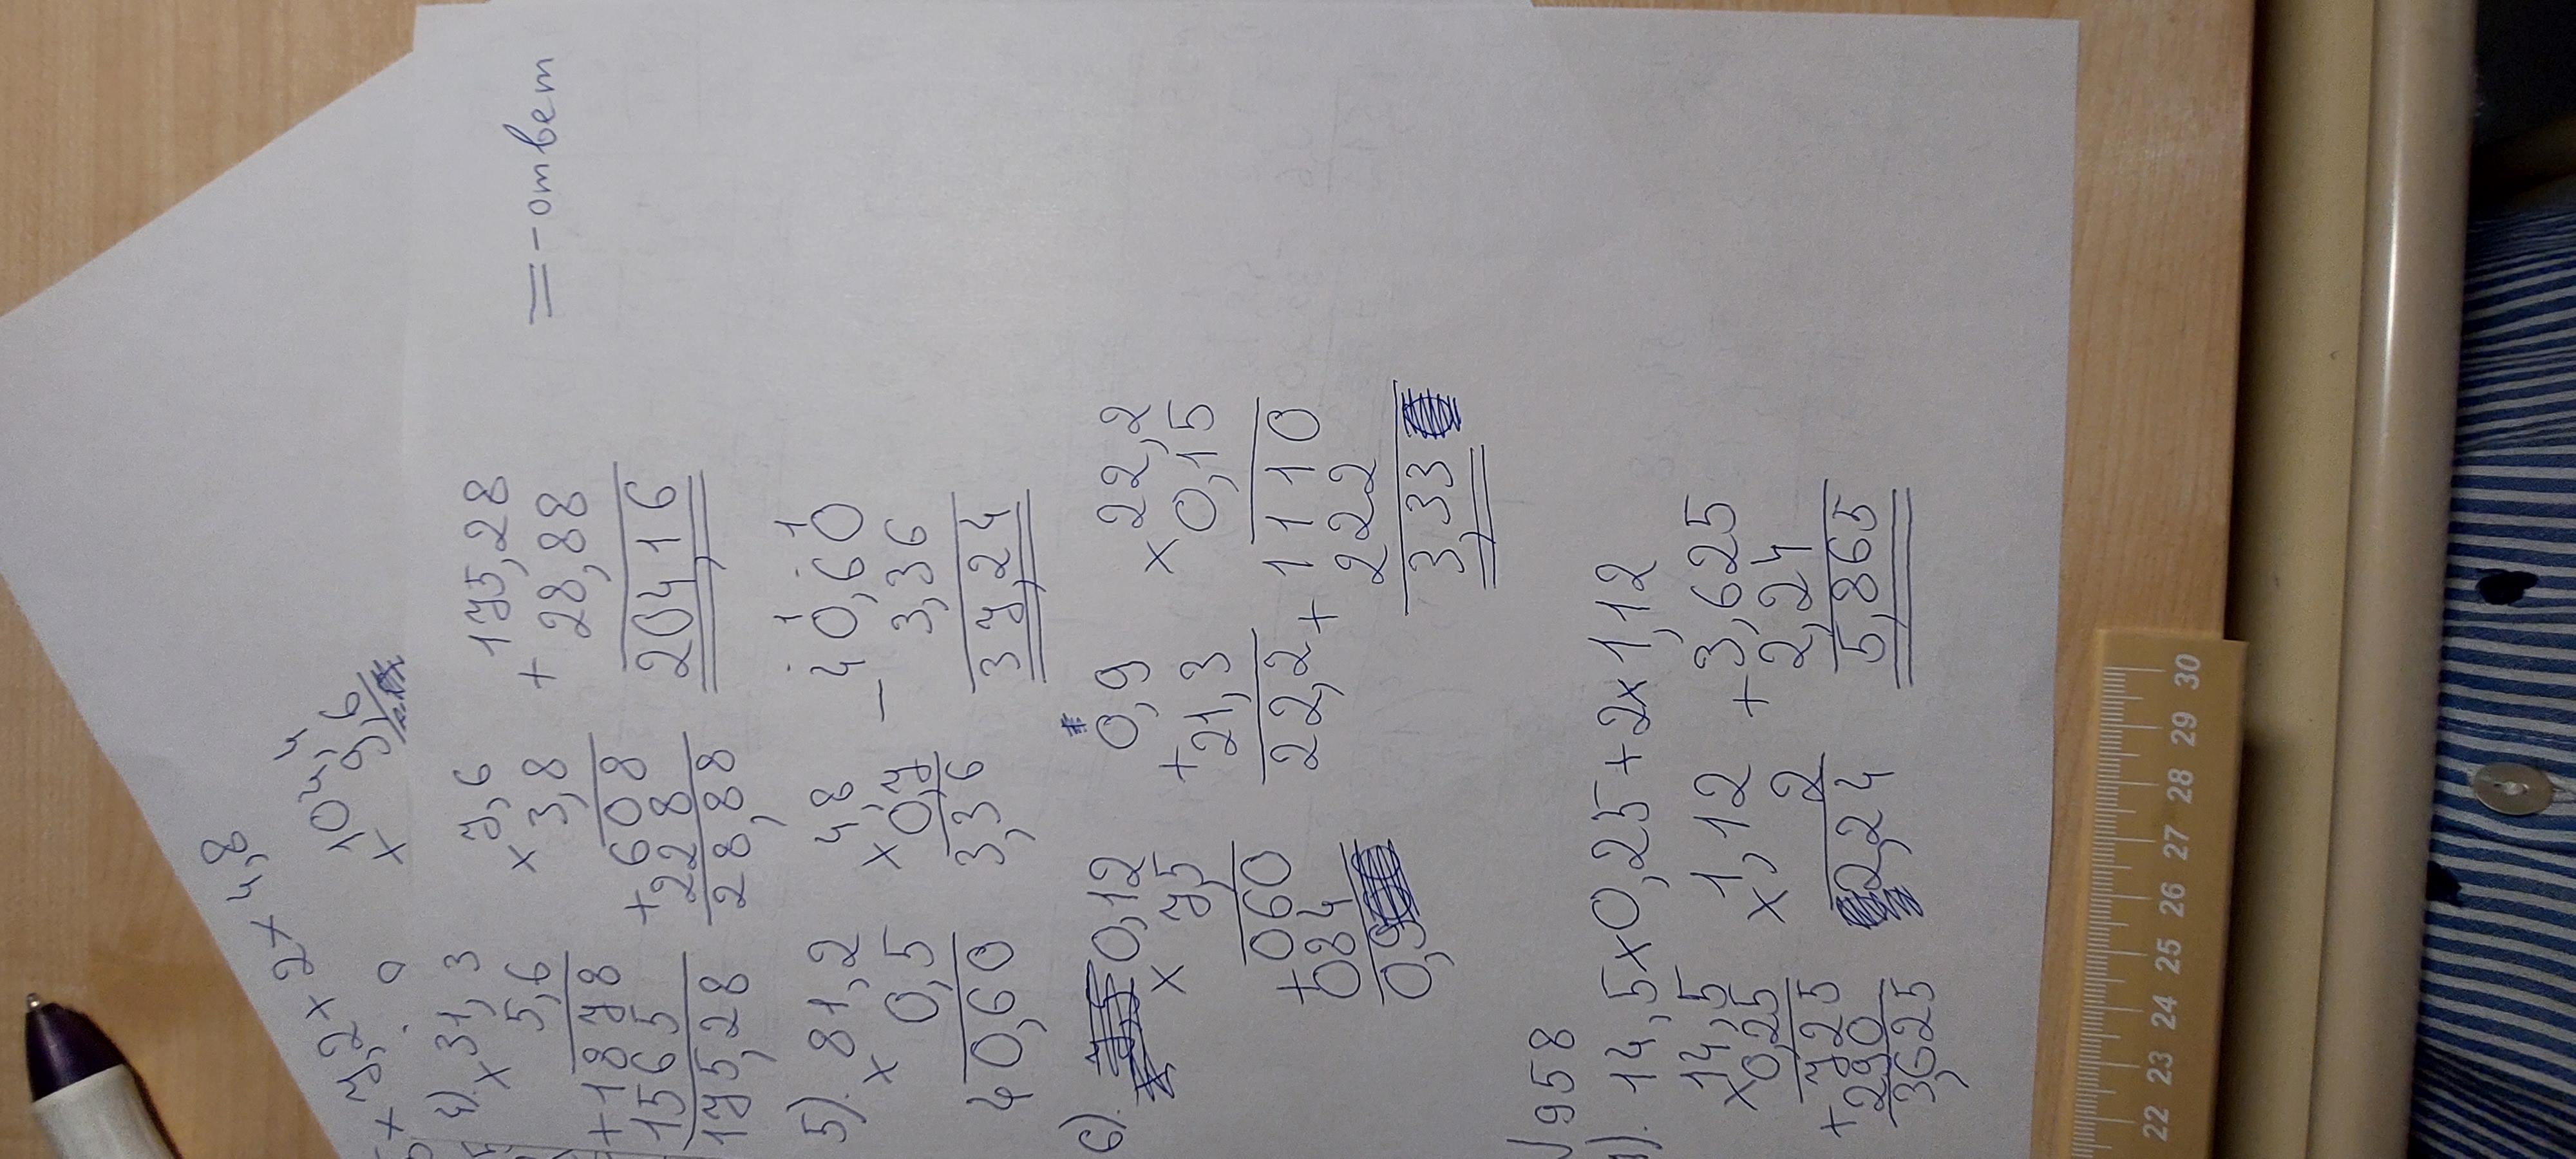 7,2 x 2 x 4,8
x 10
= - ответ
4). x 31,3
5,6
+ 1878
1565
175,28
x 7,6
3,8
+ 608
228
28,88
175,28
+ 28,88
204,16
5). x 81,2
0,5
40,60
4,8
x 0,7
3,36
- 40,60
3,36
37,24
6). 0,12
x 75
+ 060
084
0,9
0,9
+ 21,3
22,2
22,2
x 0,15
+ 1110
222
3,33
958
14,5 x 0,25 + 2 x 1,12
14,5
x 0,25
+ 725
290
3,625
1,12
x 2
2,24
+ 3,625
2,24
5,865
22 23 24 25 26 27 28 29 30